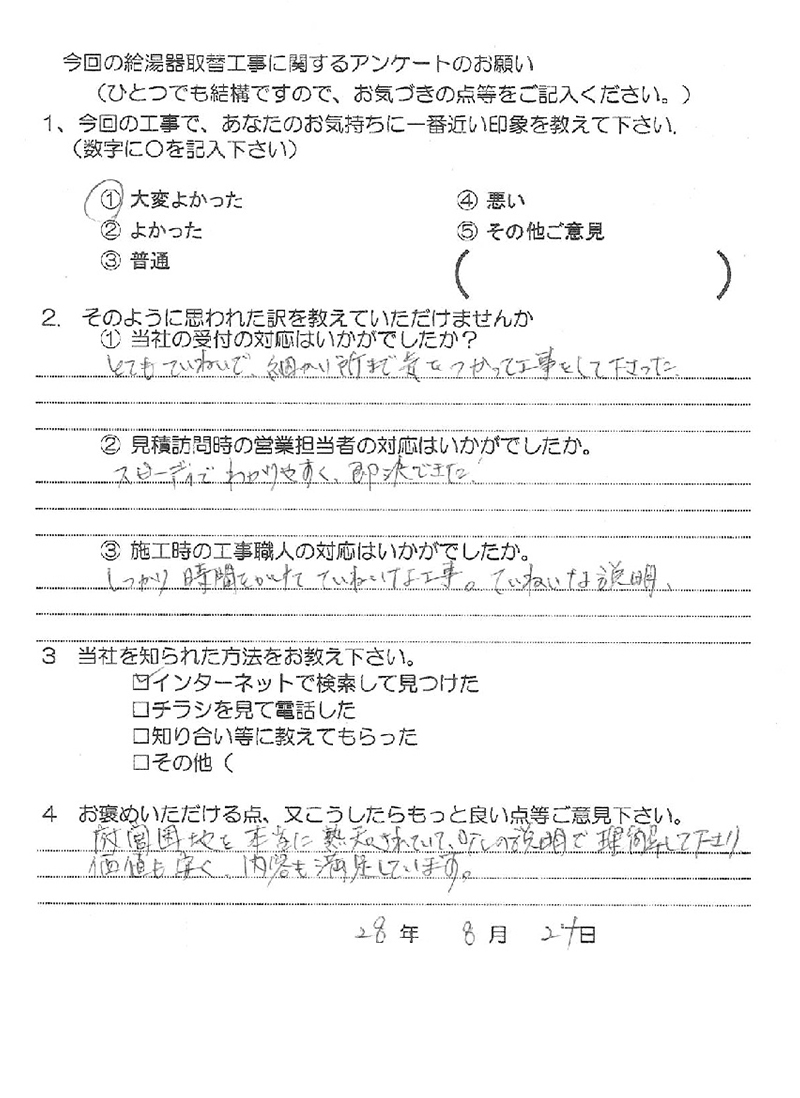 今回の給湯器取替工事に関するアンケートのお願い
（ひとつでも結構ですので、お気づきの点等をご記入ください。）
1、今回の工事で、あなたのお気持ちに一番近い印象を教えて下さい.
（数字に〇を記入下さい）
① 大変よかった ④ 悪い
② よかった ⑤ その他ご意見
③ 普通 （ ）
2. そのように思われた訳を教えていただけませんか
① 当社の受付の対応はいかがでしたか？
とてもていねいで、細かい所まで気をつかって工事をして下さった.
② 見積訪問時の営業担当者の対応はいかがでしたか。
スピーディでわかりやすく、即決できた!
③ 施工時の工事職人の対応はいかがでしたか。
しっかり時間をかけてていねいな工事。ていねいな説明、
3 当社を知られた方法をお教え下さい。
☑インターネットで検索して見つけた
□チラシを見て電話した
□知り合い等に教えてもらった
□その他（
4 お褒めいただける点、又こうしたらもっと良い点等ご意見下さい。
団地を本当に熟知されていて、の説明で理解して下さり
価値も安く、内容も満足しています。
28年 8月 日